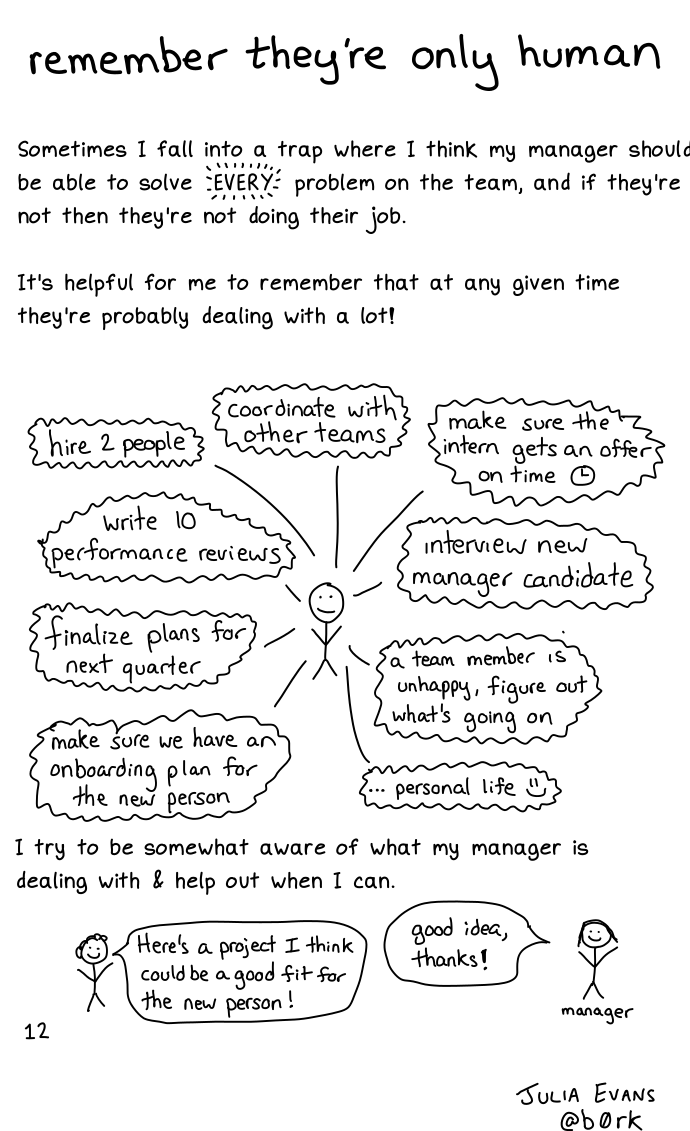 remember they're only human
Sometimes I fall into a trap where I think my manager should
be able to solve EVERY problem on the team, and if they're
not then they're not doing their job.
It's helpful for me to remember that at any given time
they're probably dealing with a lot!
hire 2 people
coordinate with
other teams
make sure the
intern gets an offer
on time
write 10
performance reviews
interview new
manager candidate
finalize plans for
next quarter
a team member is
unhappy, figure out
what's going on
make sure we have an
onboarding plan for
the new person
... personal life
I try to be somewhat aware of what my manager is
dealing with & help out when I can.
Here's a project I think
could be a good fit for
the new person!
good idea,
thanks!
manager
12
JULIA EVANS
@b0rk